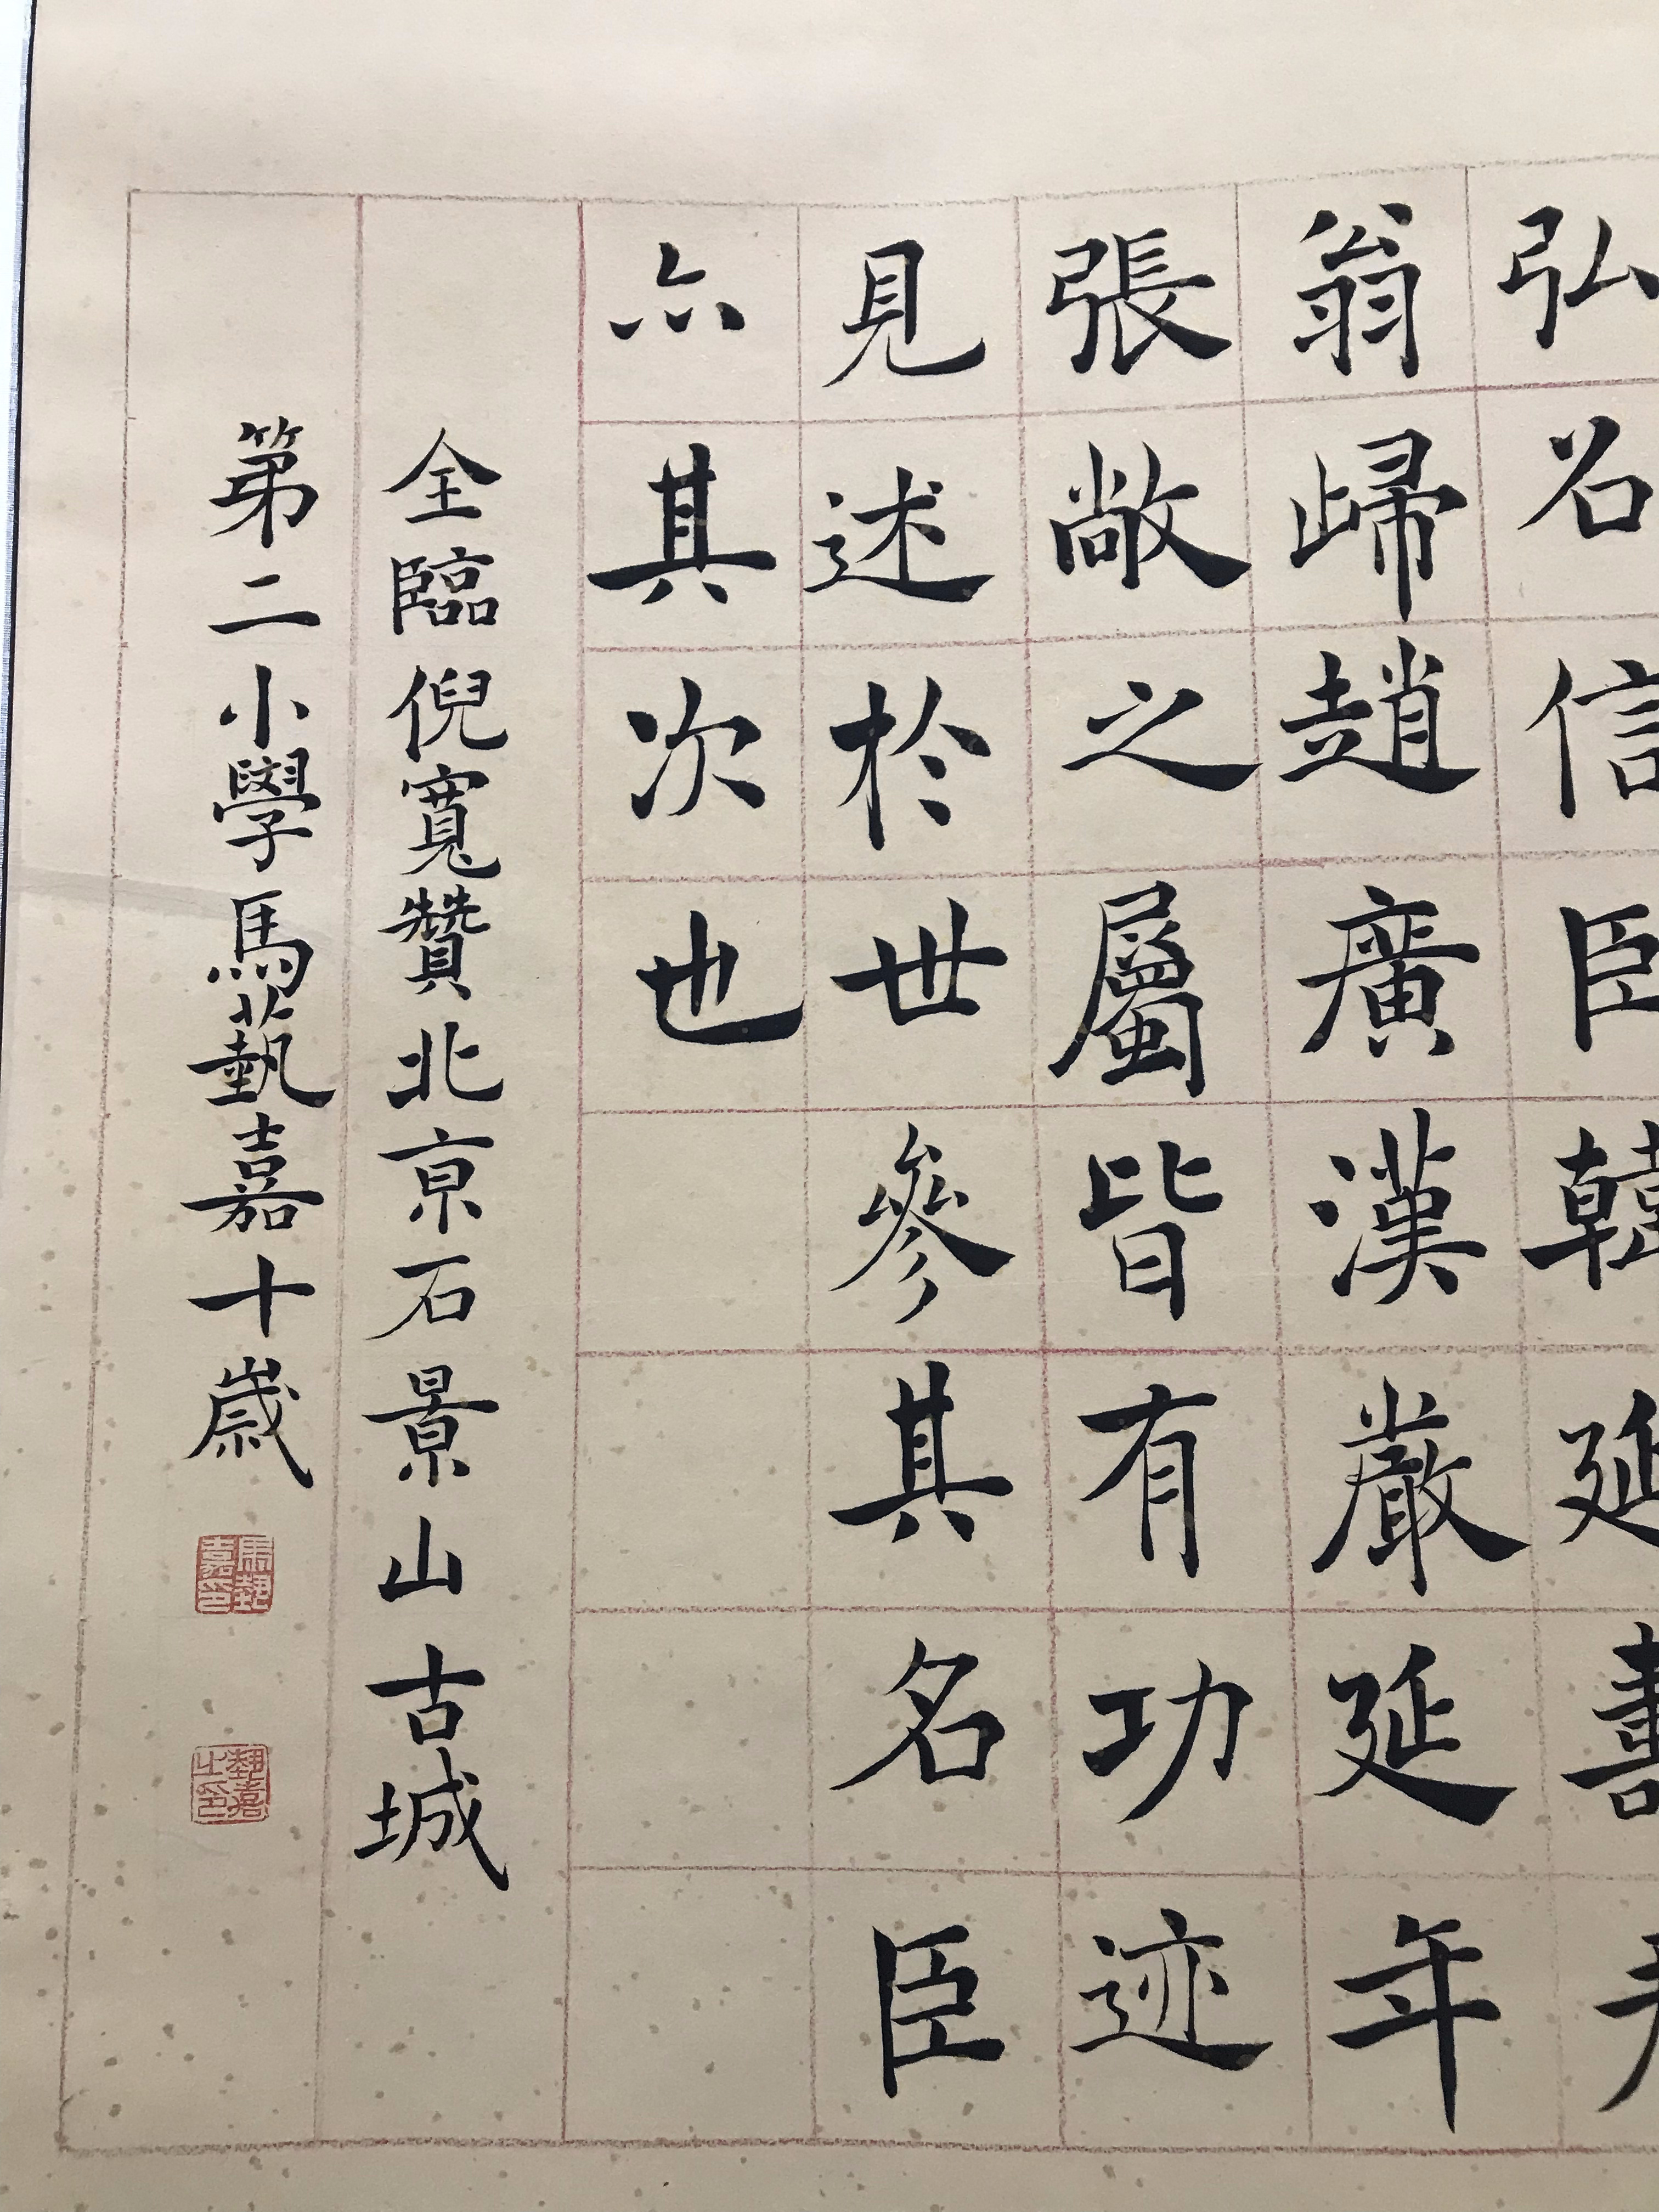 弘召信臣韓延壽尹
翁歸趙廣漢嚴延年
張敞之屬皆有功迹
見述於世參其名臣
亦其次也
全臨倪寬贊北京石景山古城
第二小學馬藝嘉十歲
馬藝嘉印
藝嘉之印